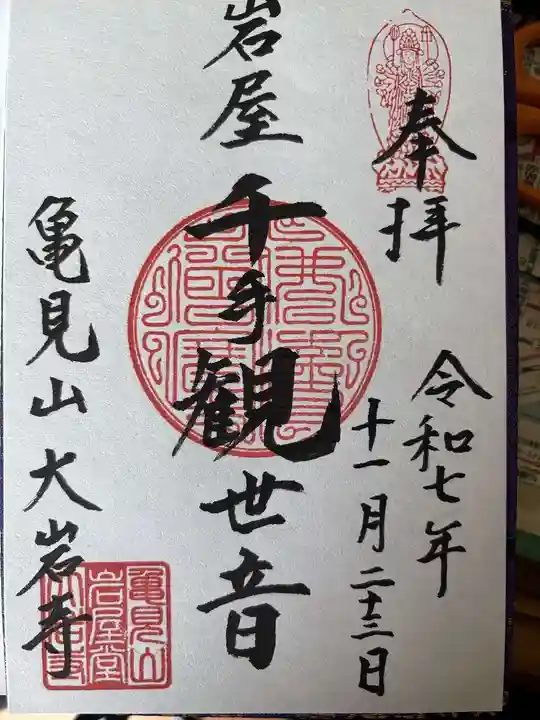 奉拝
令和七年
十一月二十三日
岩屋
千手観世音
亀見山大岩寺
亀見山
岩屋堂
大岩寺